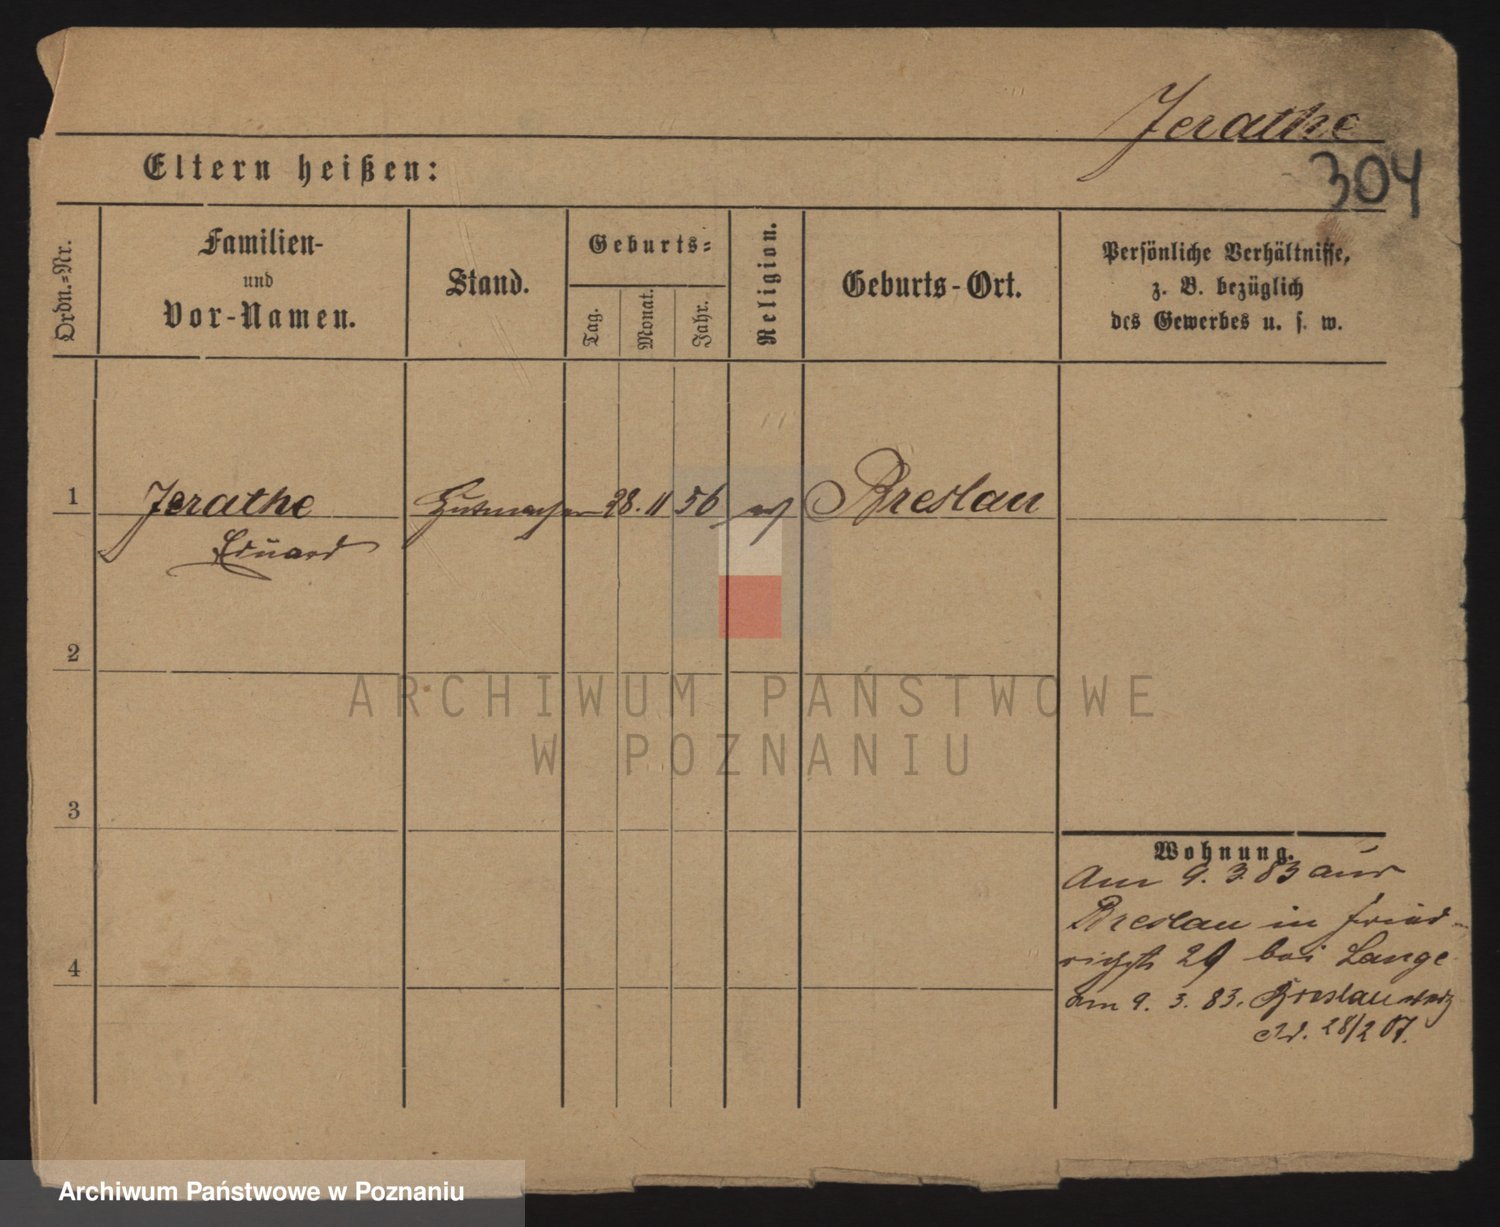 Jerathe
304
Eltern heißen:
Ordn.-Nr.
Familien-
und
Vor-Namen.
Stand.
Geburts-
Tag.
Monat.
Jahr.
Religion.
Geburts-Ort.
Persönliche Verhältnisse,
z. B. bezüglich
des Gewerbes u. s. w.
1 Jerathe Hutmacher 28. 11 56 Breslau
Eduard
2
ARCHIWUM PAŃSTWOWE
W POZNANIU
3
Wohnung.
Am 9. 3. 83 aus
Breslau in Fried-
richstr 29 bei Lange
am 9. 3. 83. Breslau
28/2 07.
4
Archiwum Państwowe w Poznaniu